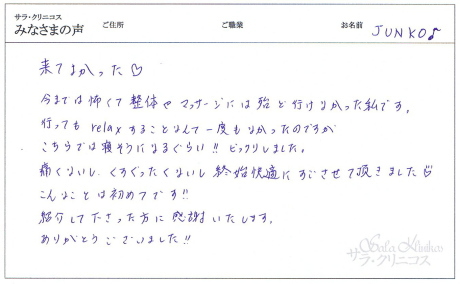 サラ・クリニコス
みなさまの声 ご住所 ご職業 お名前 JUNKO♪
来てよかった♡
今までは怖くて整体やマッサージには殆ど行けなかった私です。
行ってもrelaxすることなんて一度もなかったのですが
こちらでは寝そうになるぐらい!! ビックリしました。
痛くないし、くすぐったくないし終始快適にすごさせて頂きました
こんなことは初めてです!!
紹介して下さった方に感謝いたします。
ありがとうございました!!
Sala Klinikos
サラ・クリニコス